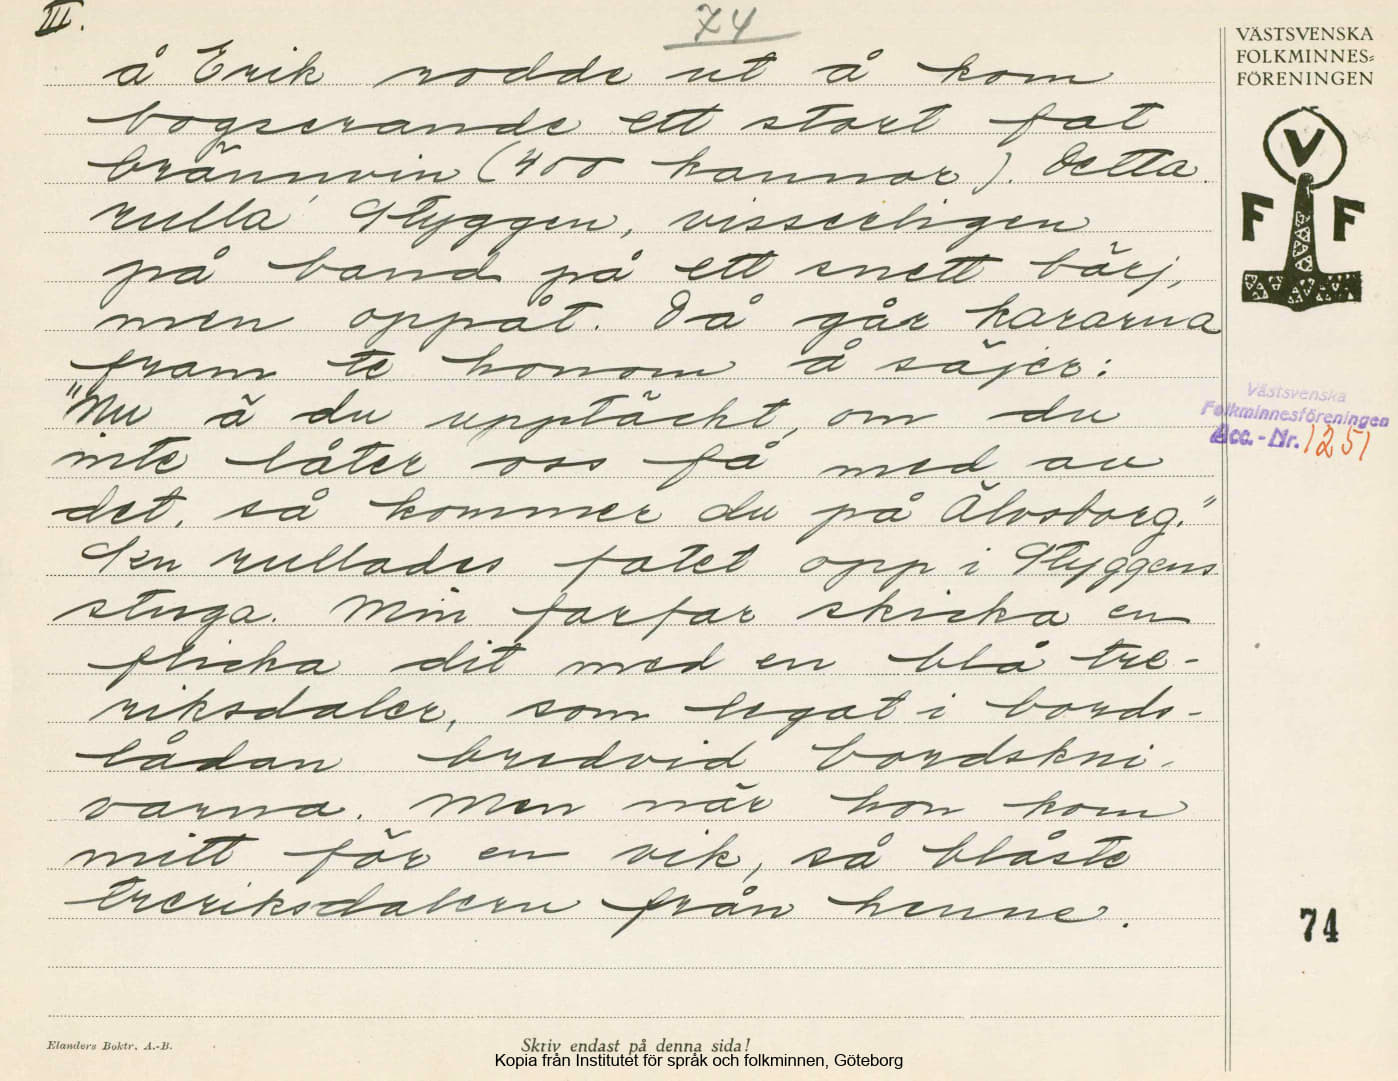 III.
74
å Erik rodde ut å kom
bogserande ett stort fat
brännvin (400 kannor). Detta
rulla' Styggen, visserligen
på band på ett snett bärj,
men oppåt. Då går kararna
fram te honom å säjer:
"Nu ä du upptäckt, om du
inte låter oss få med au
det, så kommer du på Älvsborg."
Sen rullades fatet opp i Styggens
stuga. Min farfar skicka en
flicka dit med en blå tre-
riksdaler, som legat i bords-
lådan bredvid bordskni-
varna. Men när hon kom
mitt för en vik, så blåste
treriksdalern från henne.
VÄSTSVENSKA
FOLKMINNES=
FÖRENINGEN
V
F F
Västsvenska
Folkminnesföreningen
Acc.-Nr. 1251
74
Elanders Boktr. A.-B.
Skriv endast på denna sida!
Kopia från Institutet för språk och folkminnen, Göteborg